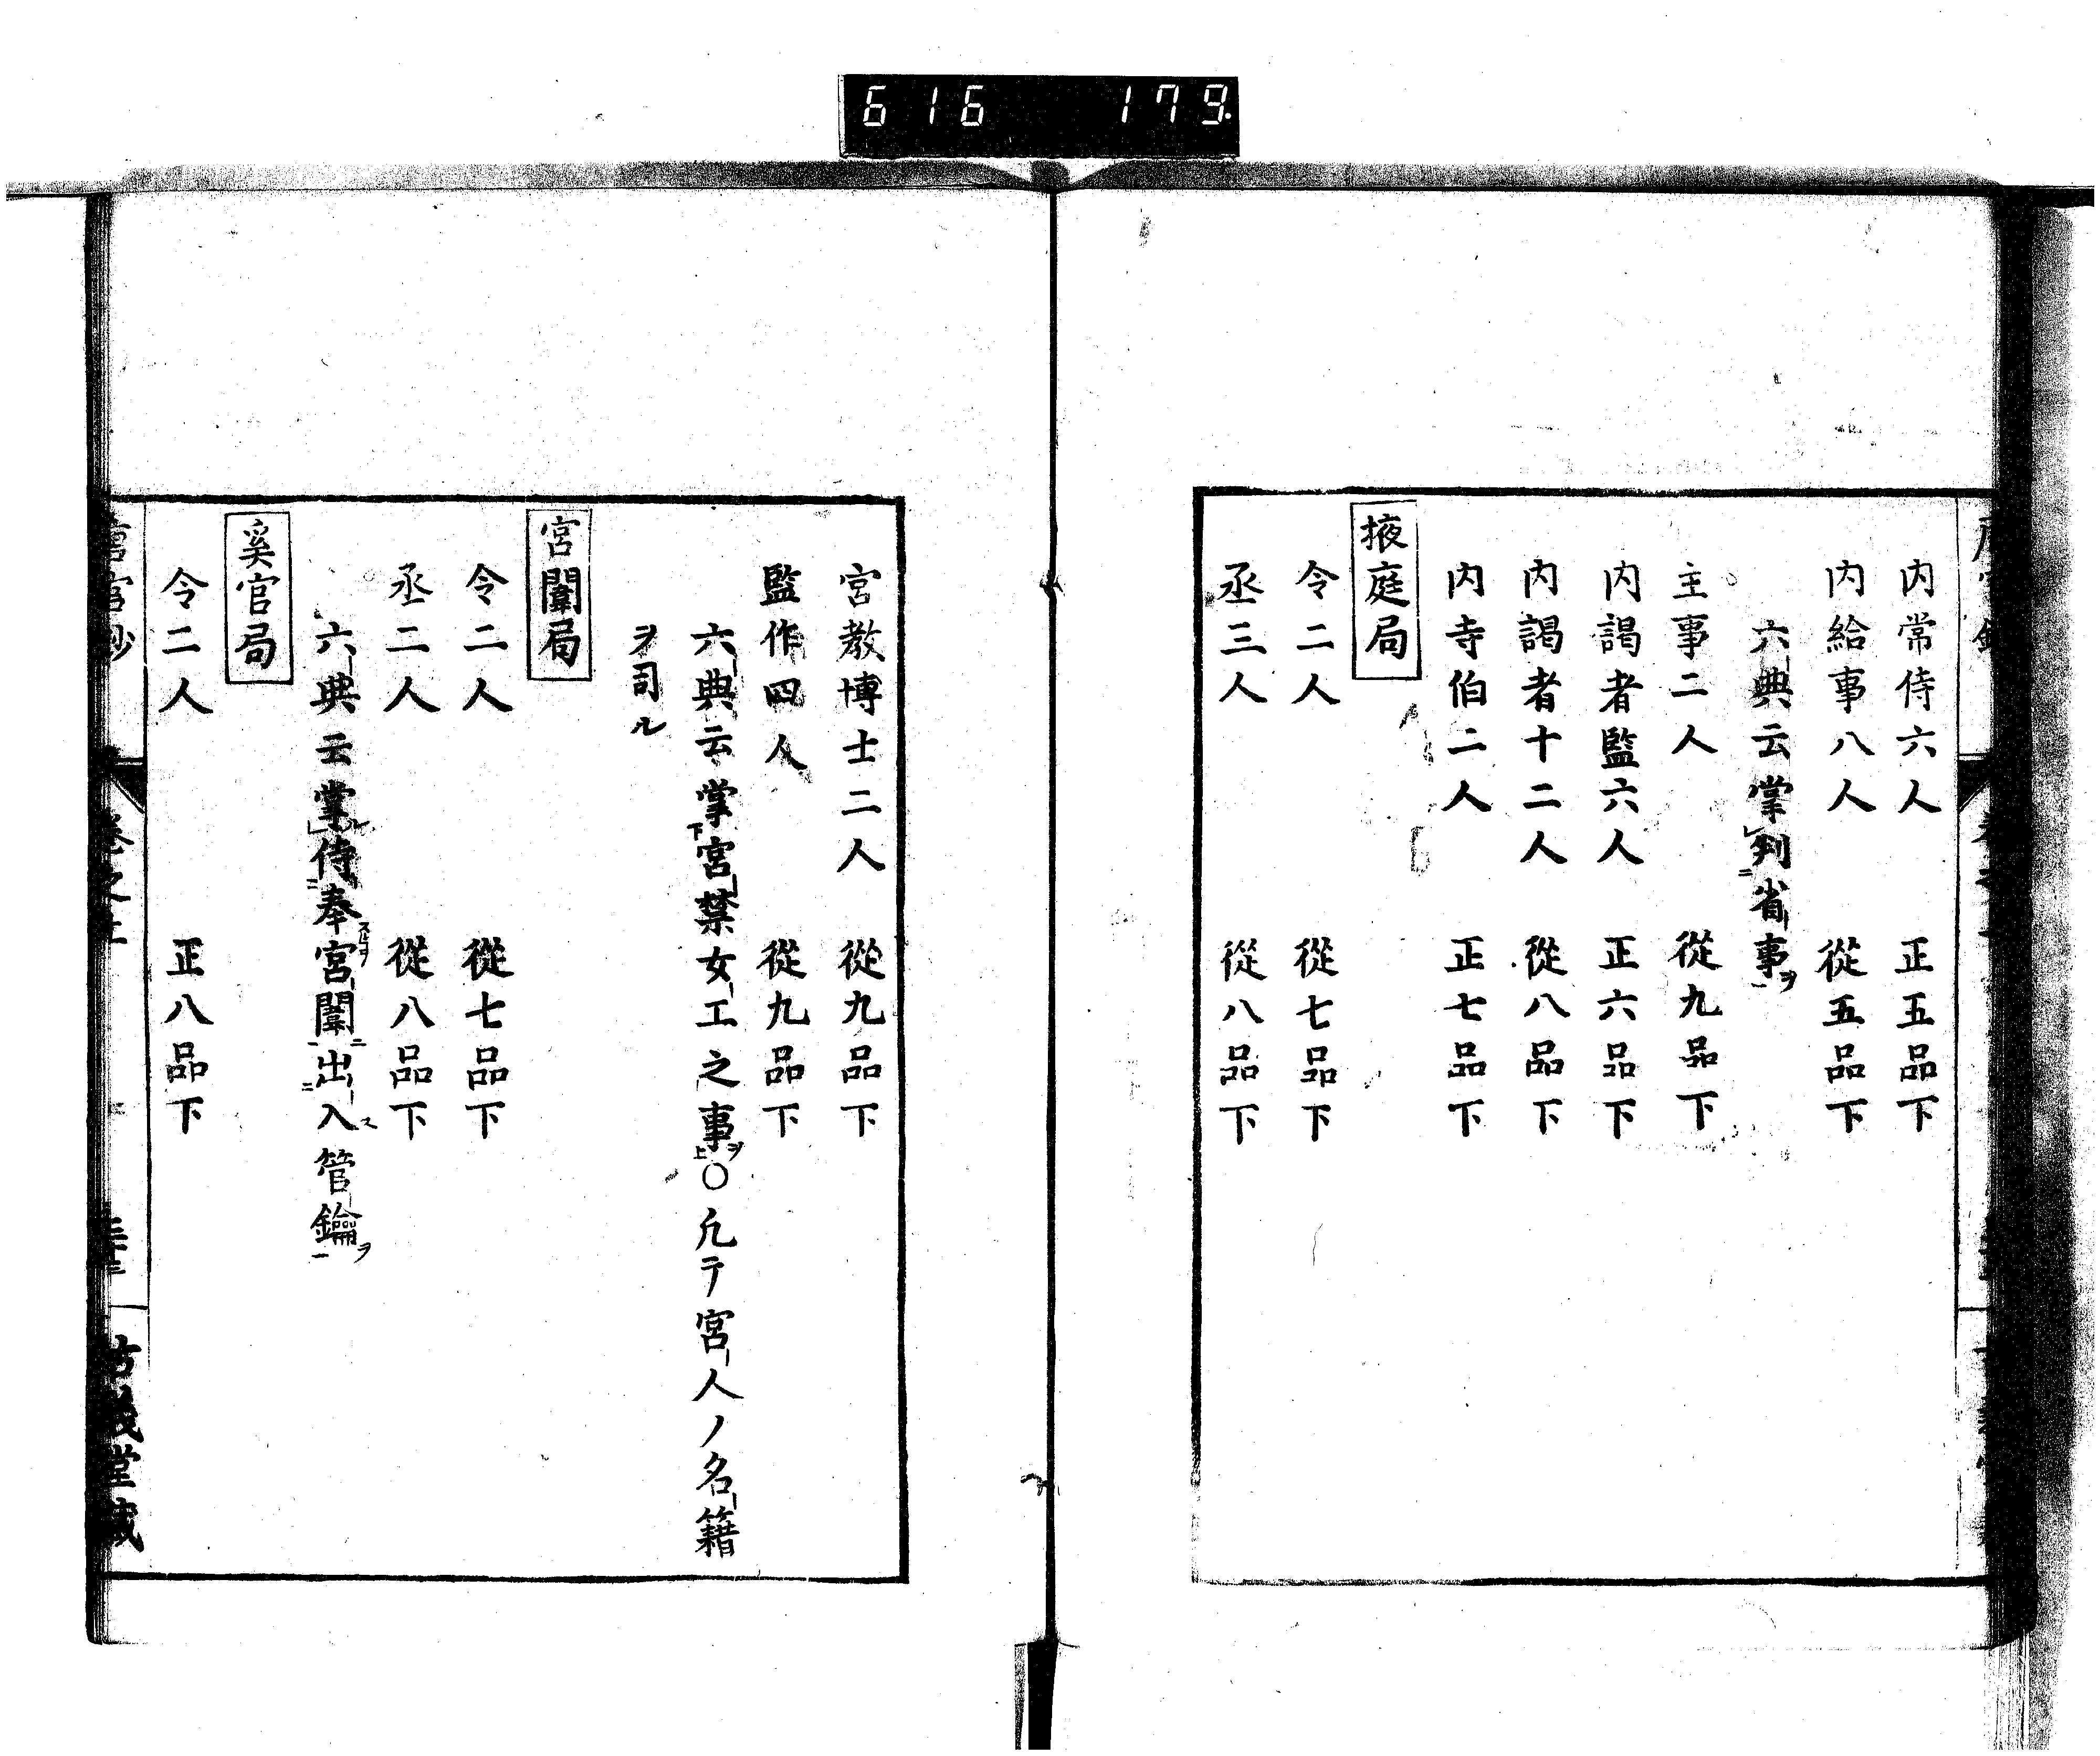 616 179
内常侍六人 正五品下
内給事八人 從五品下
六典云掌判省事ヲ
主事二人 從九品下
内謁者監六人 正六品下
内謁者十二人 從八品下
内寺伯二人 正七品下
掖庭局
令二人 從七品下
丞三人 從八品下
宮教博士二人 從九品下
監作四人 從九品下
六典云掌下宮禁女工之事ヲ上○凢テ宮人ノ名籍
ヲ司ル
宮闈局
令二人 從七品下
丞二人 從八品下
六典云掌レ侍二奉スルヿヲ宮闈一出二入ス管鑰ヲ一
奚官局
令二人 正八品下
官鈔 卷之 古義堂藏